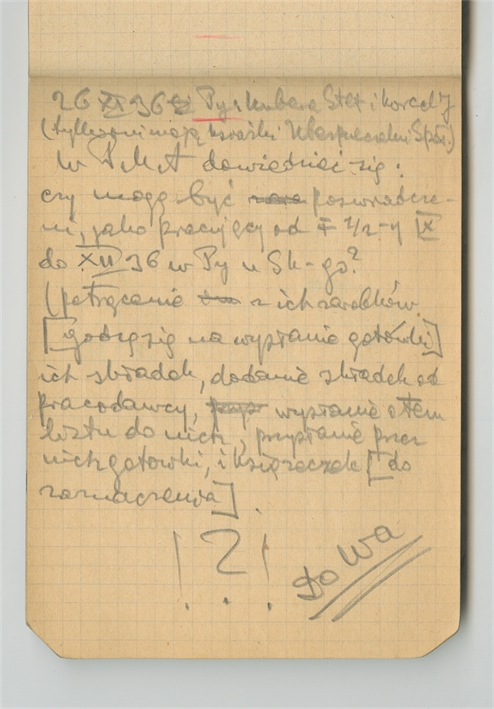 26 XI 36 Py: Kubera Stef i Korecz J
(tylko oni mają książki Ubezpieczalni Społ.)
W P.M.A dowiedzieć się:
czy mogę być poświadcze-
ni, jako pracujący od 1/2-y IX
do XII 36 w Py u Sk-go?
(potrącenie z ich zarobków
[godzą się na wysłanie gotówki]
ich składek, dodanie składek od
pracodawcy, wysłanie o tem
listu do nich, przysłanie przez
nich gotówki, i książeczek [do
zaznaczenia].
! ? !
Do Wa